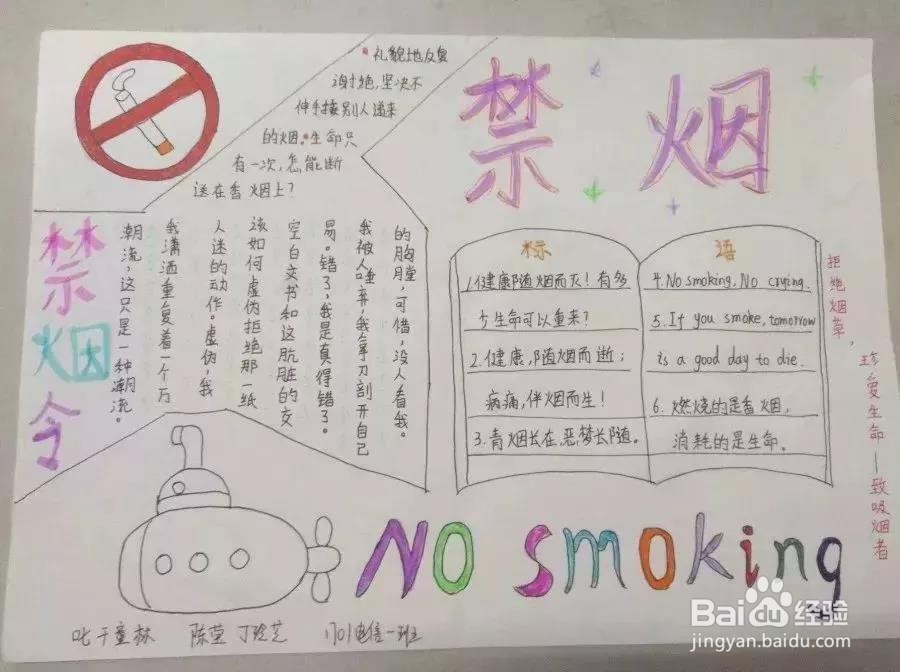 •礼貌地反复
谢绝,坚决不
伸手接别人递来
的烟.•生命只
有一次,怎能断
送在香烟上?
禁烟
禁烟令
的胸膛,可惜,没人看我。
我被人唾弃,我拿刀剖开自己
易。错了,我是真得错了。
空白文书和这肮脏的交
该如何虚伪拒绝那一纸
人迷的动作。虚伪,我
我潇洒重复着一个万
潮流,这只是一种潮流。
标 语
1.健康随烟而灭!有多
少生命可以重来?
2.健康,随烟而逝;
病痛,伴烟而生!
3.青烟长在,恶梦长随。
4.No smoking, No crying.
5.If you smoke, tomorrow
is a good day to die.
6.燃烧的是香烟,
消耗的是生命。
拒绝烟草,
珍爱生命—致吸烟者
NO smoking
陈莹 1701电信一班
Baidu经验
jingyan.baidu.com